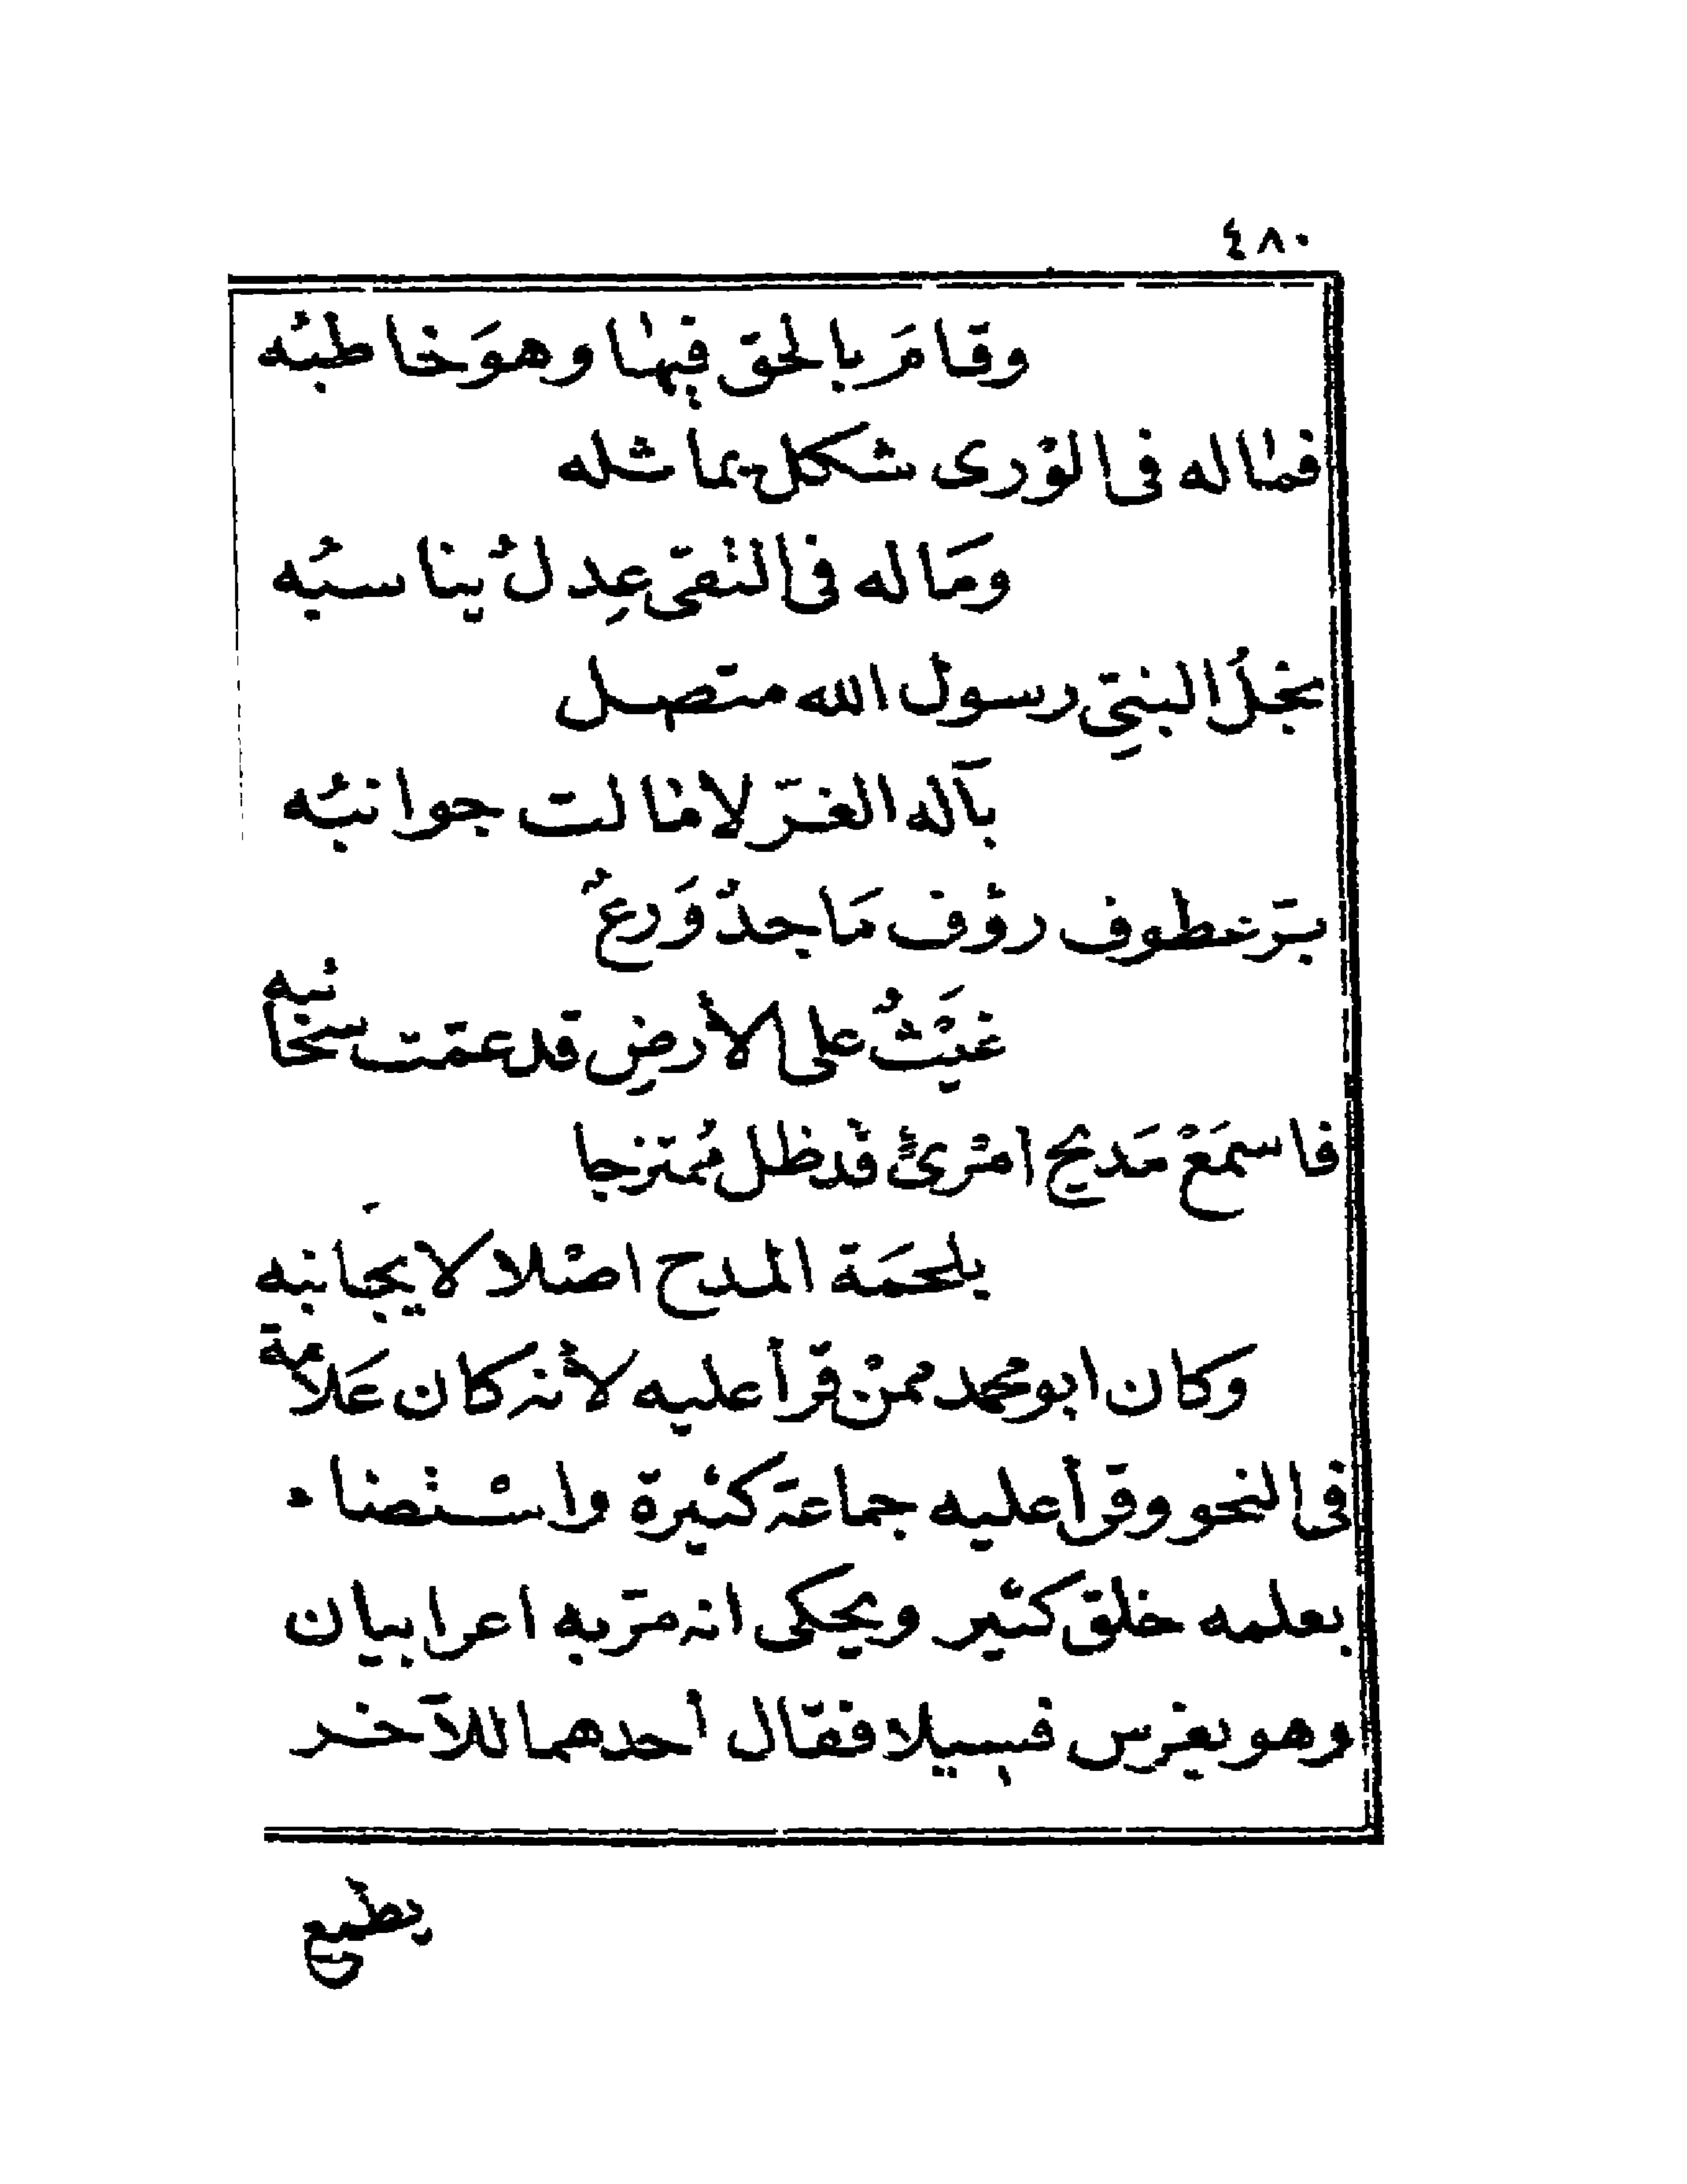 ٤٨٠
وقامَ بالحق فيها وهوَ خاطبُه
فما له فى الوْرى شكل يماثله
ومَا له فى التقى عِدلُ يناسبُه
نجلُ النبىِّ رسول الله متصل
بآله الغرّ لا مالت جوانبُه
برّ عطوف رؤف مَاجدٌ وَرعٌ
غَيْثٌ على الأرضِ قد عمّت سحَائبه
فاسمَعْ مَديح امْرئ قد ظل مُمتزجا
بلحمَة المدح اصْلا لا يجَانبه
وكان ابو محمد ممنْ قرأ عليه لأنه كان عَلامة
فى النحو وقرأ عليه جماعة كثيرة واسْتضاء
بعلمه خلق كثير ويحكى انه مرّ به اعرابيان
وهو يغرس فسيلا فقال أحدهما للآخر
يطمع